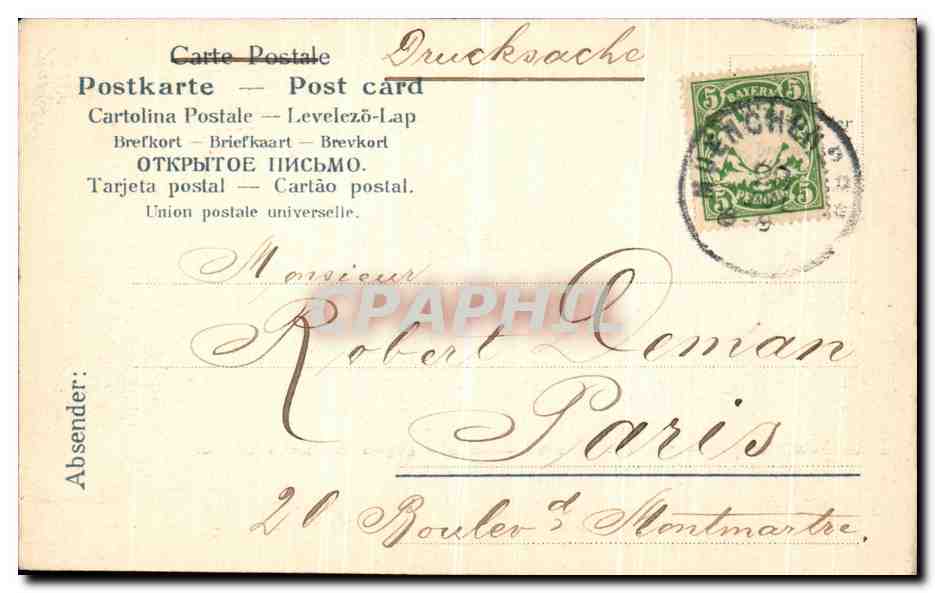 Carte Postale
Drucksache
Postkarte — Post card
Cartolina Postale — Levelező-Lap
Brefkort — Briefkaart — Brevkort
ОТКРЫТОЕ ПИСЬМО.
Tarjeta postal — Cartão postal.
Union postale universelle.
5 BAYERN 5
MUENCHEN
5 PFENNIG 5
Monsieur
CPAPHIL
Robert Deman
Paris
20 Boulevd Montmartre.
Absender: